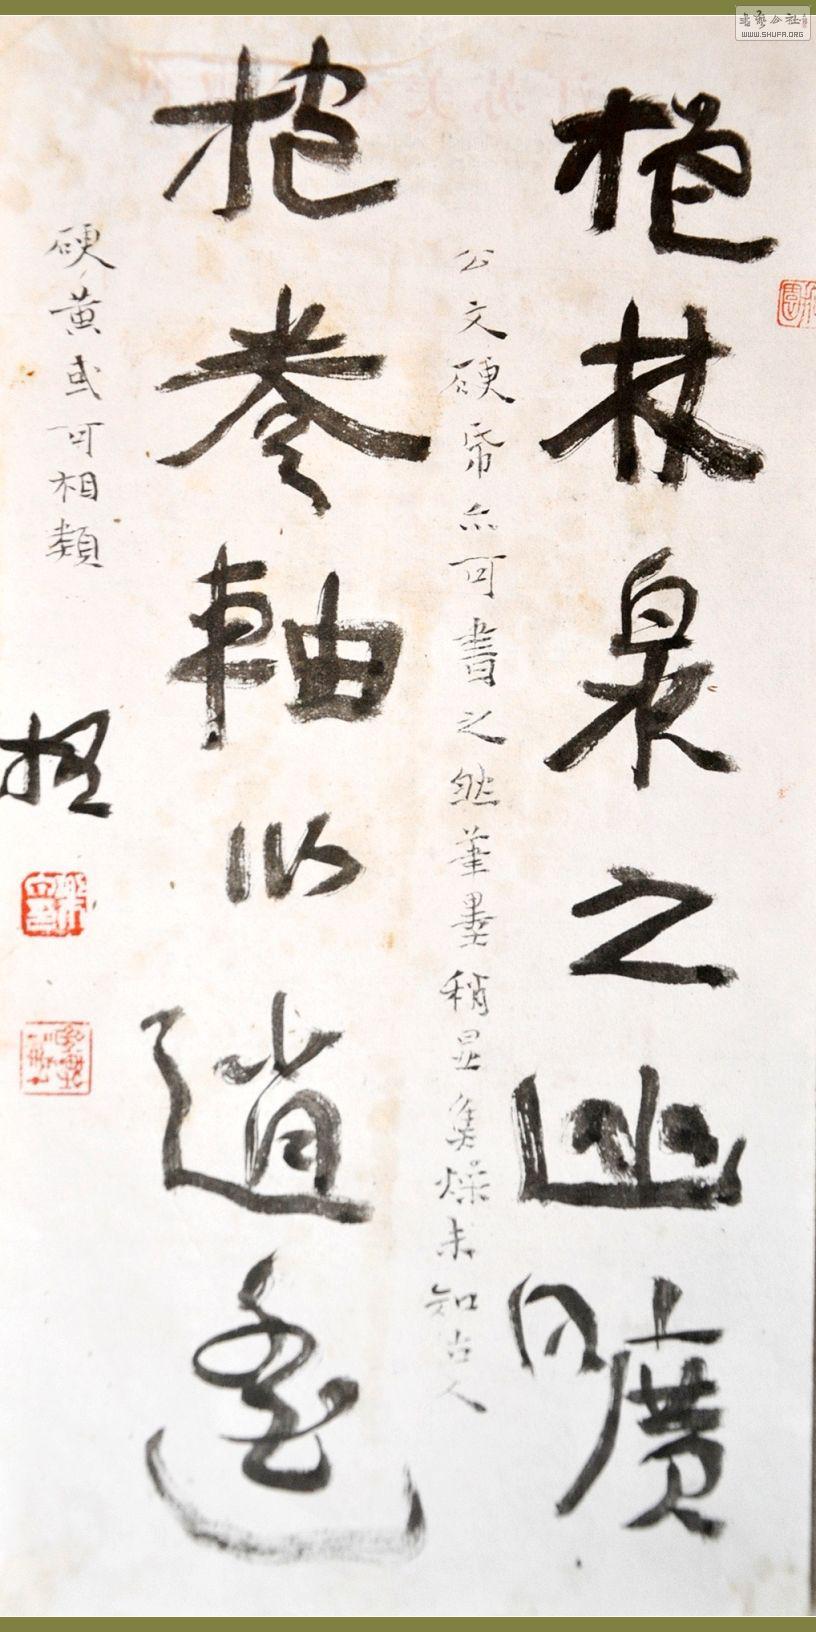 挹林泉之幽曠
公文硬帋亦可書之然筆墨稍显集燥未知古人
抱卷軸以逍遙
硬黄或可相類
WWW.SHUFA.ORG